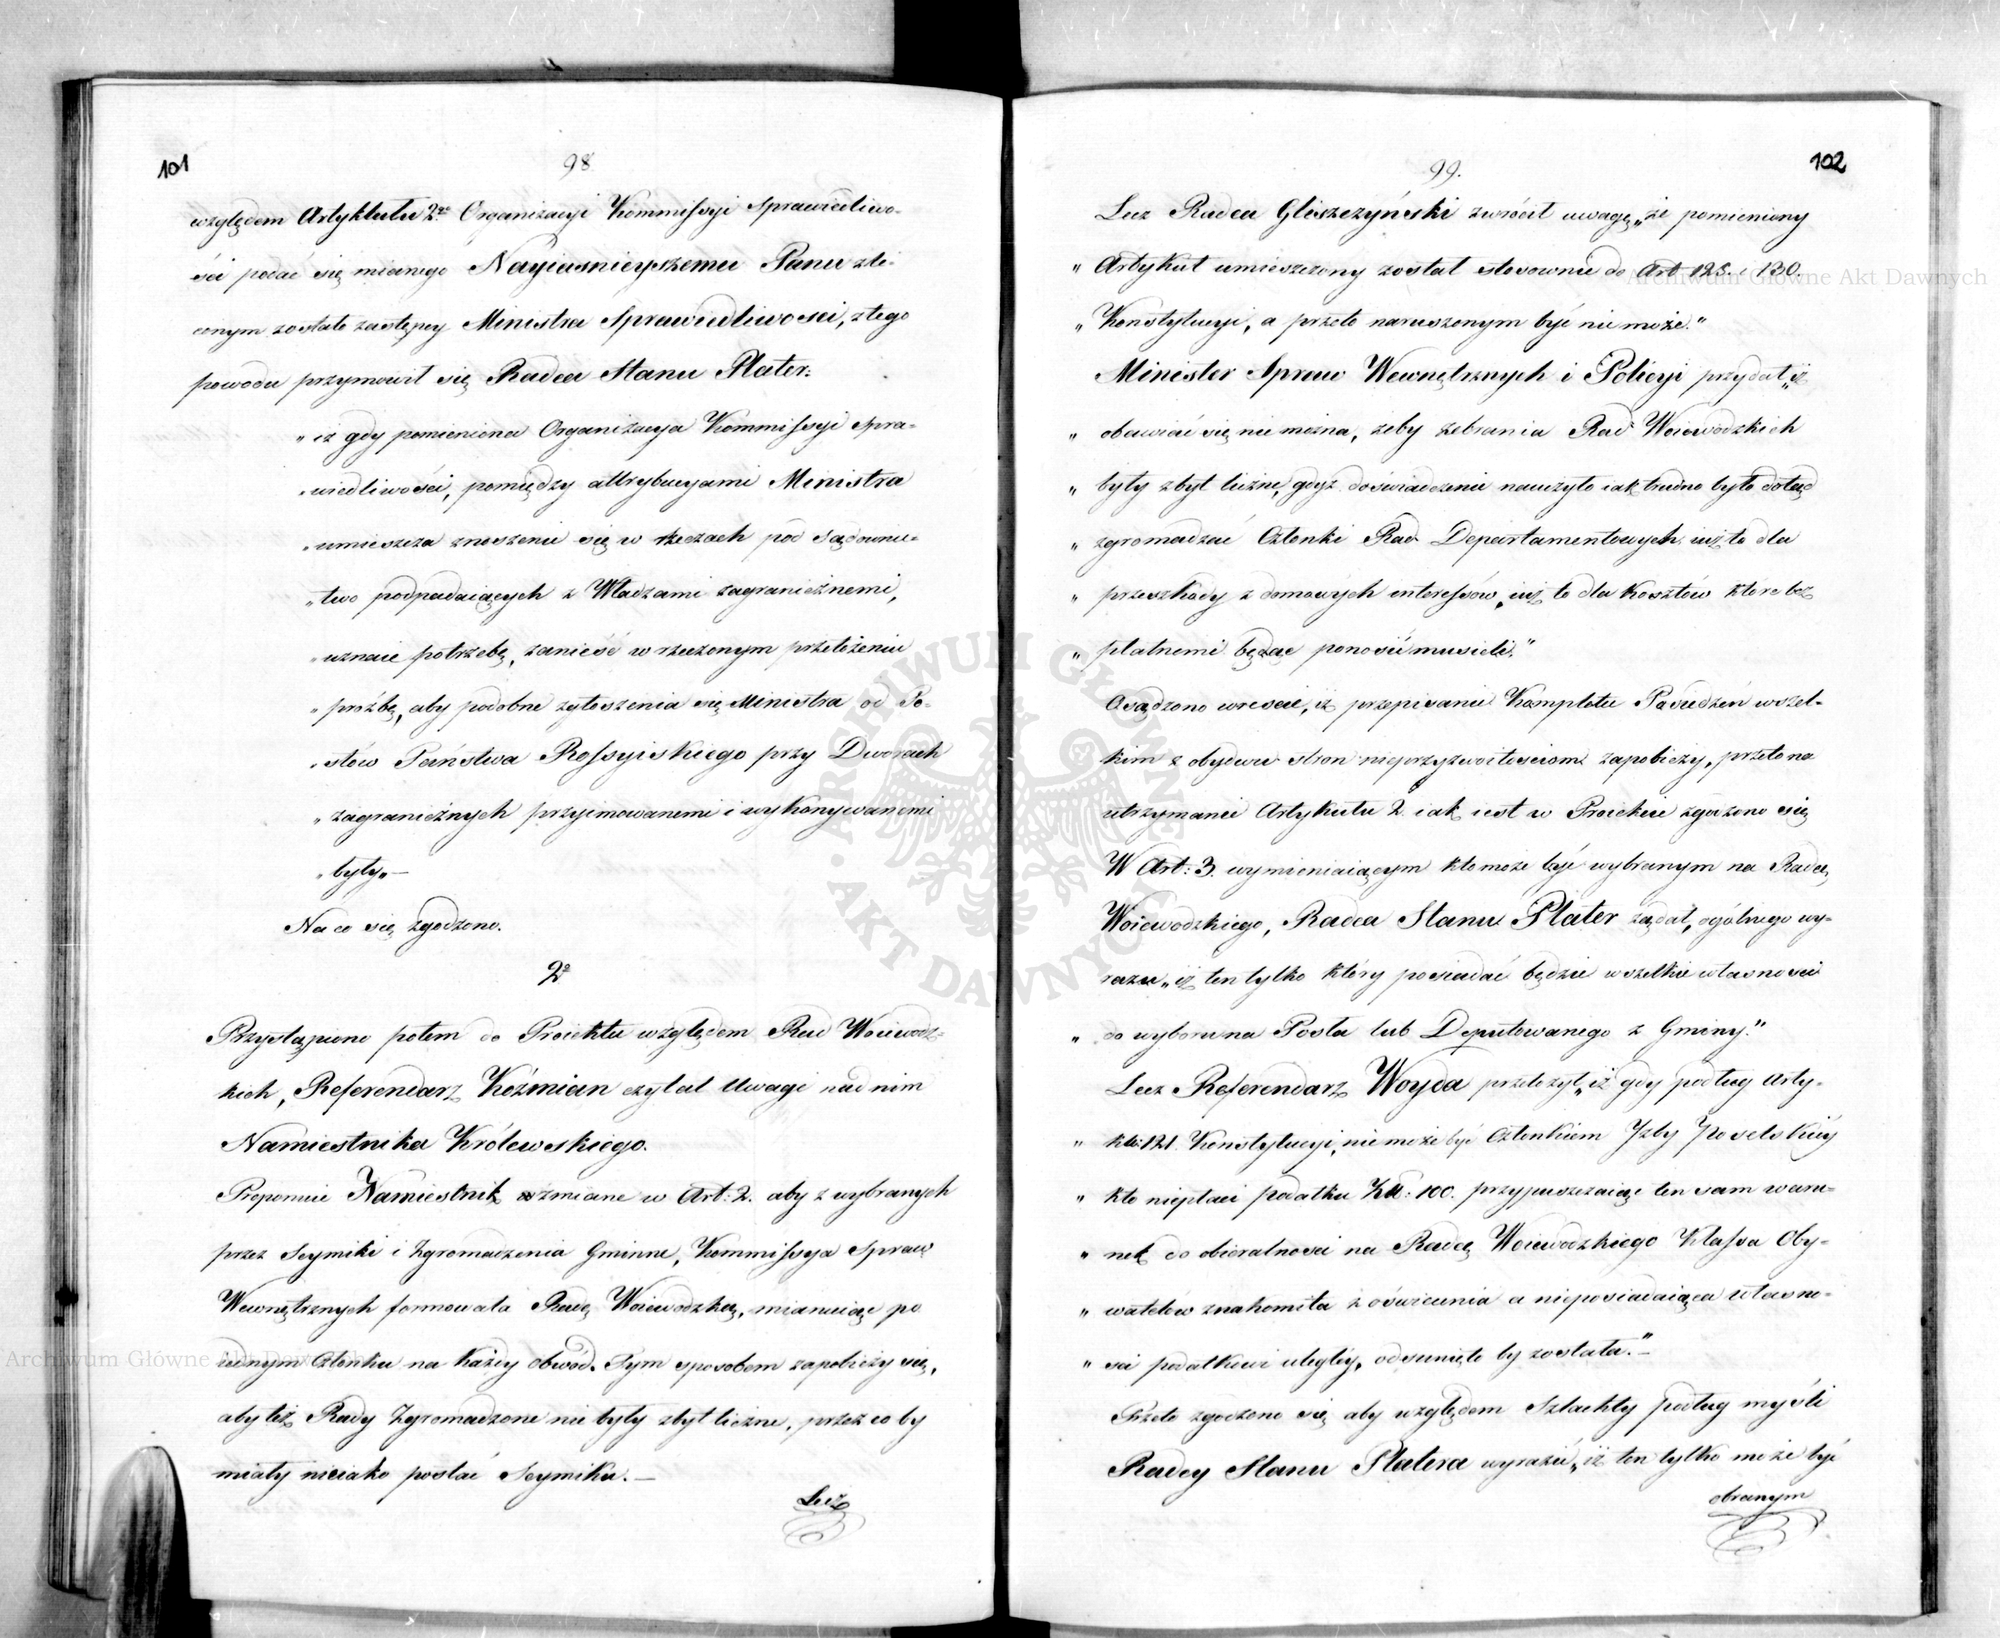 101
98
względem Artykułu 2go Organizacyi Kommissyi Sprawiedliwo-
ści podać się mianego Nayiaśnieyszemu Panu zle-
conym zostało zastępcy Ministra Sprawiedliwości, z tego
powodu przymówił się Radca Stanu Plater:
„iż gdy pomieniona Organizacya Kommissyi Spra-
„wiedliwości, pomiędzy attrybucyami Ministra
„umieszcza znoszenie się w rzeczach pod Sądownic-
„two podpadaiących z Władzami zagranicznemi,
„uznaie potrzebę, zanieść w rzeczonym przełożeniu
„prośbę, aby podobne zgłoszenia się Ministra od Po-
„słów Państwa Rossyiskiego przy Dworach
„zagranicznych przyimowanemi i wykonywanemi
„były„—
Na co się zgodzono.
2o
Przystąpiono potem do Proiektu względem Rad Woiewodz-
kich, Referendarz Koźmian czytał Uwagi nad nim
Namiestnika Królewskiego.
Proponuie Namiestnik zmianę w Art: 2. aby z wybranych
przez Seymiki i Zgromadzenia Gminne, Kommissya Spraw
Wewnętrznych formowała Radę Woiewodzką, mianuiąc po
iednym Członku na każdy obwód. Tym sposobem zapobieży się,
aby też Rady Zgromadzone nie były zbyt liczne, przez co by
miały nieiako postać Seymiku.—
Lecz
102
99.
Lecz Radca Gliszczyński zwrócił uwagę „że pomieniony
„Artykuł umieszczony został stosownie do Art 128. i 130.
„Konstytucyi, a przeto naruszonym być nie może."
Minister Spraw Wewnętrznych i Policyi przydał „iż
„obawiać się nie można, żeby zebrania Rad Woiewodzkich
„były zbyt liczne, gdyż doświadczenie nauczyło iak trudno było dotąd
„zgromadzać Członki Rad Departamentowych iuż to dla
„przeszkody z domowych interessów, iuż to dla kosztów które bez
„płatnemi będąc ponosić musieli."
Osądzono wreście, iż przepisanie Kompletu Posiedzeń wszel-
kim z obydwu stron nieprzyzwoitościom zapobieży, przeto na
utrzymanie Artykułu 2. iak iest w Proiekcie zgodzono się
W Art: 3. wymieniaiącym kto może być wybranym na Radcę
Woiewodzkiego, Radca Stanu Plater żądał, ogólnego wy-
razu „iż ten tylko który posiadać będzie wszelkie własności
„do wyboru na Posła lub Deputowanego z Gminy."
Lecz Referendarz Woyda przełożył „iż gdy podług Arty-
„kłu: 121. Konstytucyi, nie może być Członkiem Izby Poselskiey
„kto niepłaci podatku Złł: 100. przypuszczaiąc ten sam waru-
„nek do obieralności na Radcę Woiewodzkiego Klassa Oby-
„watelów znakomita z oświecenia a nieposiadaiąca własno-
„ści podatkowi uległéy, odsuniętą by została."—
Przeto zgodzono się aby względem Szlachty podług myśli
Radcy Stanu Platera wyrazić „iż ten tylko może być
obranym
ARCHIWUM GŁÓWNE AKT DAWNYCH
Archiwum Główne Akt Dawnych
Archiwum Główne Akt Dawnych